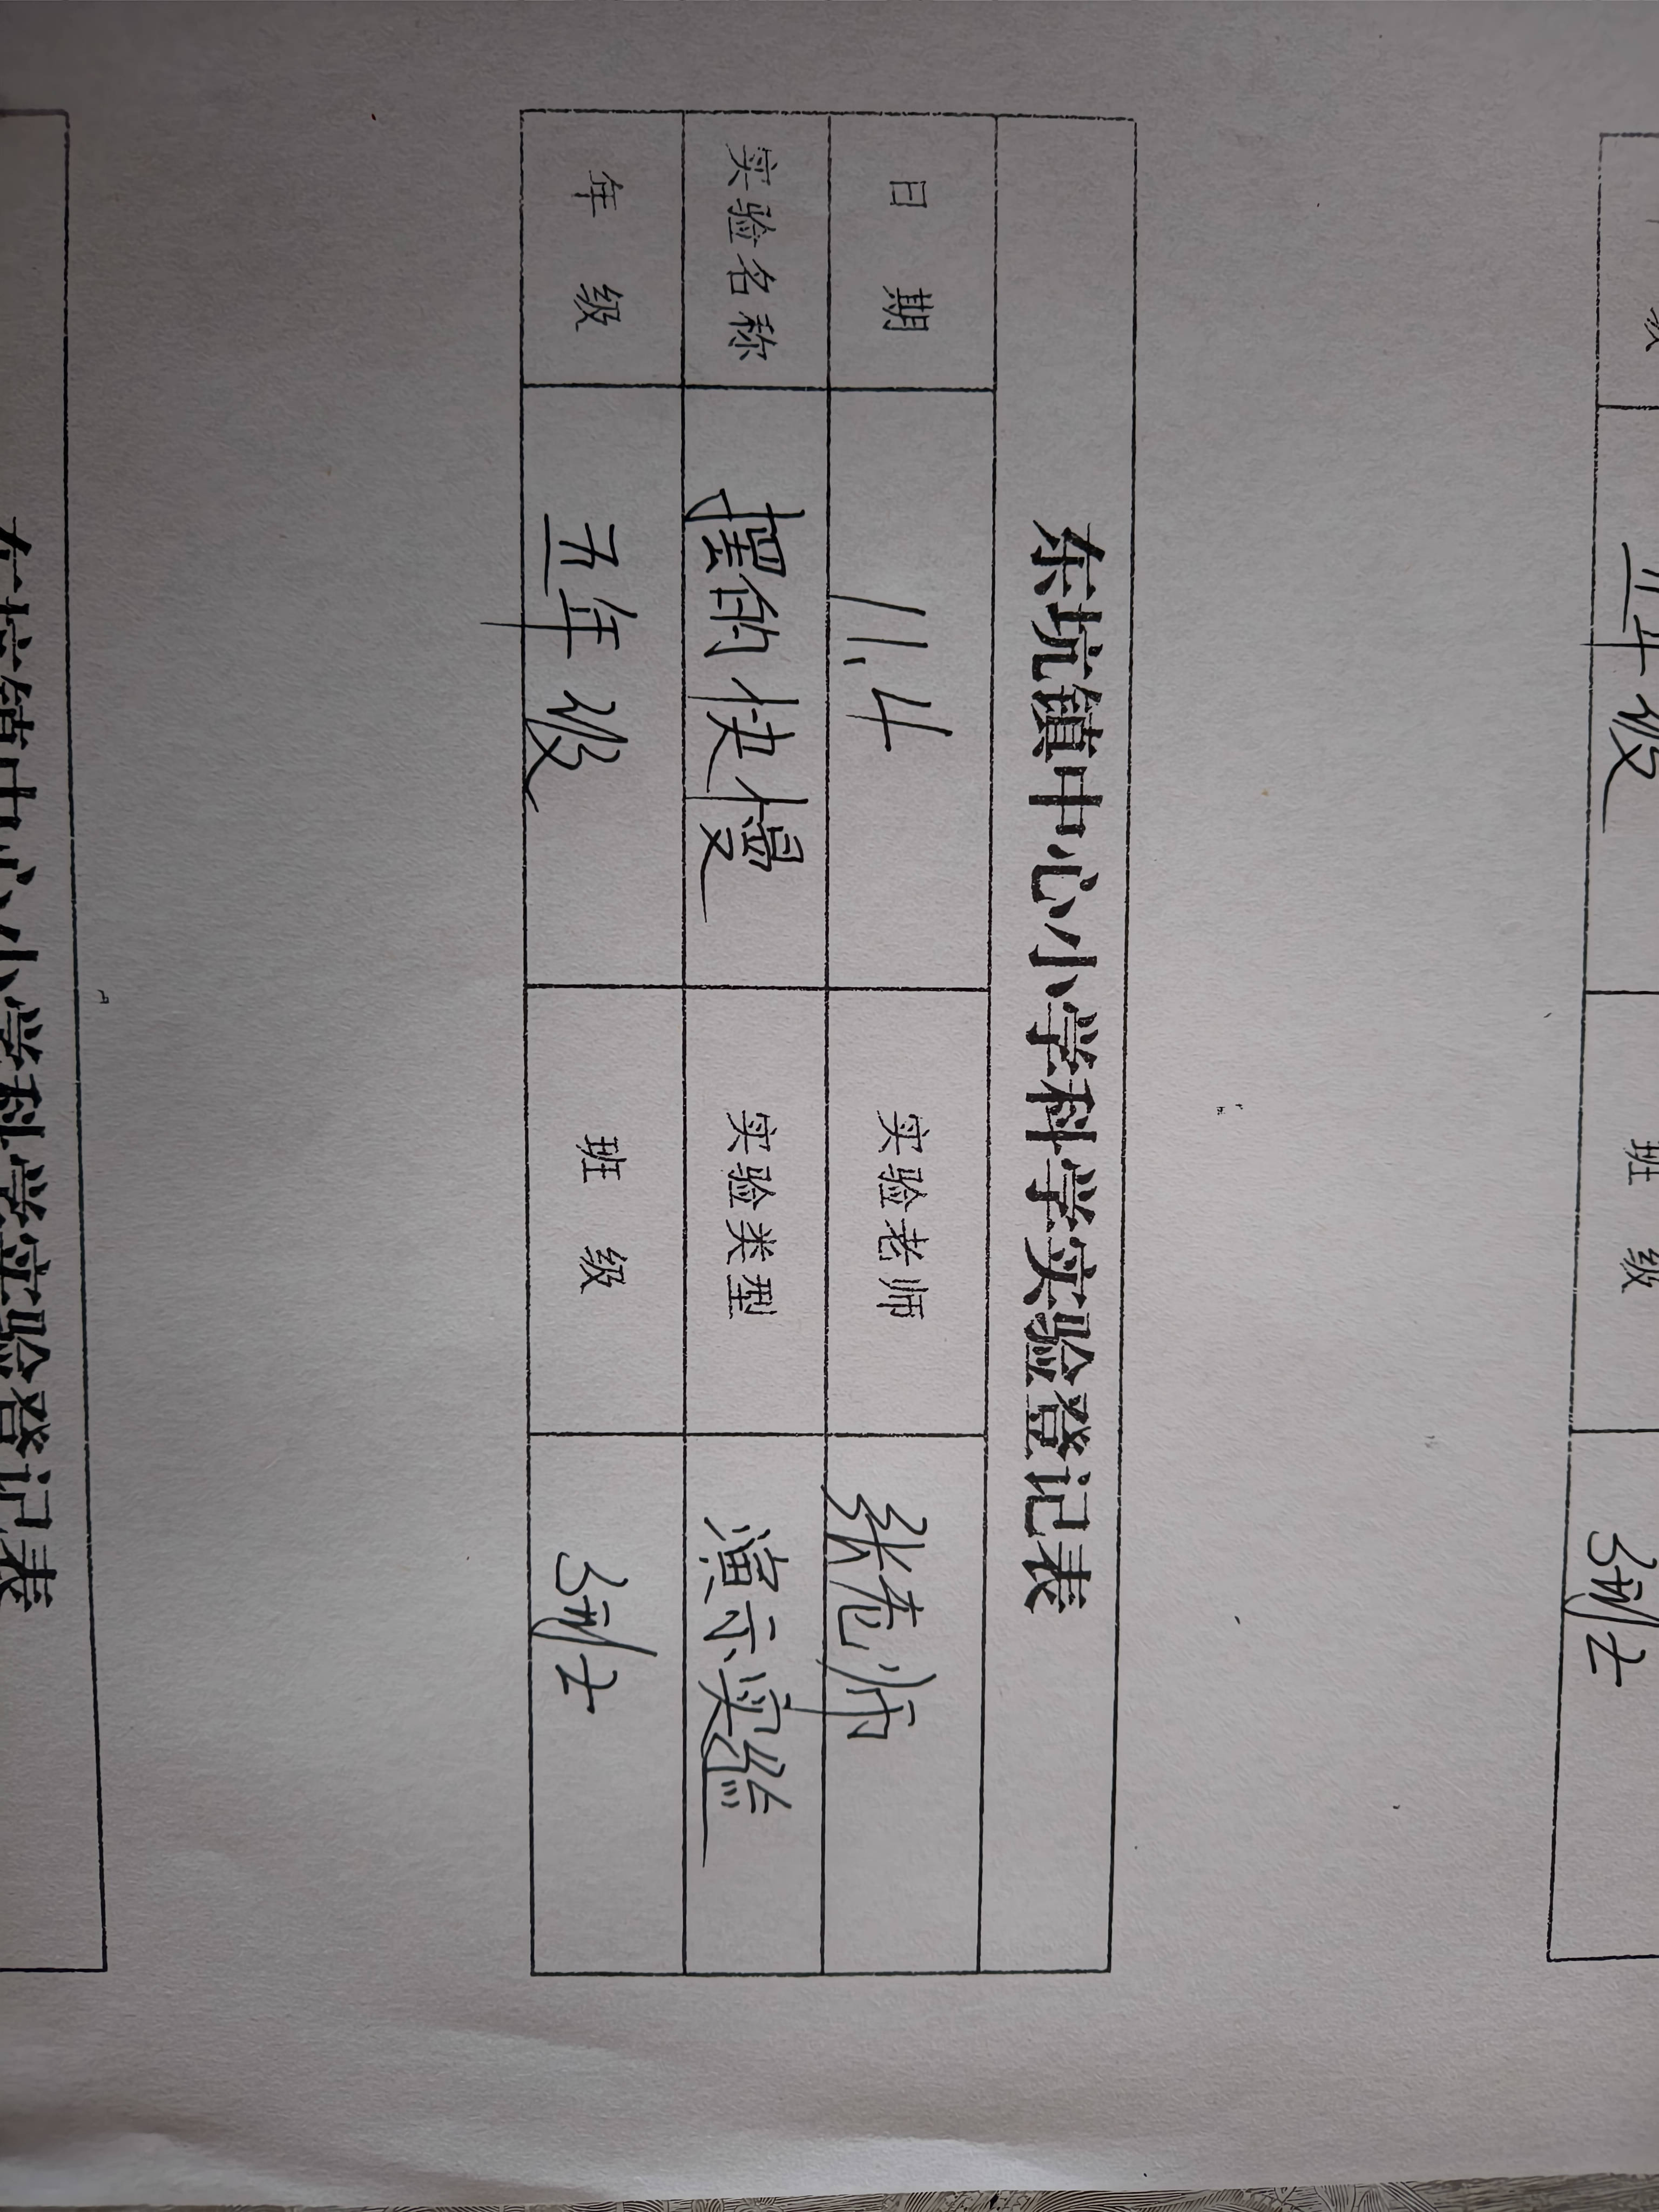 级 五年级 班 级 3班
东坑镇中心小学科学实验登记表
日 期 11.4 实验老师 张老师
实验名称 摆的快慢 实验类型 演示实验
年 级 五年级 班 级 3班
东坑镇中心小学科学实验登记表